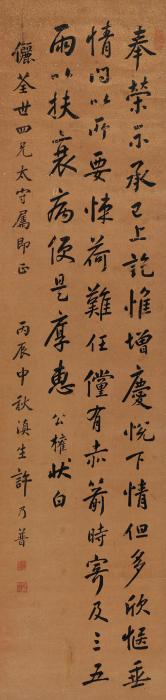 奉榮示承已上訖惟增慶悅下情但多欣愜垂
情問以所要悚荷難任儻有赤箭時寄及三五
兩以扶衰病便是厚惠 公權狀白
儷荃世四兄太守屬即正 丙辰中秋滇生許乃普